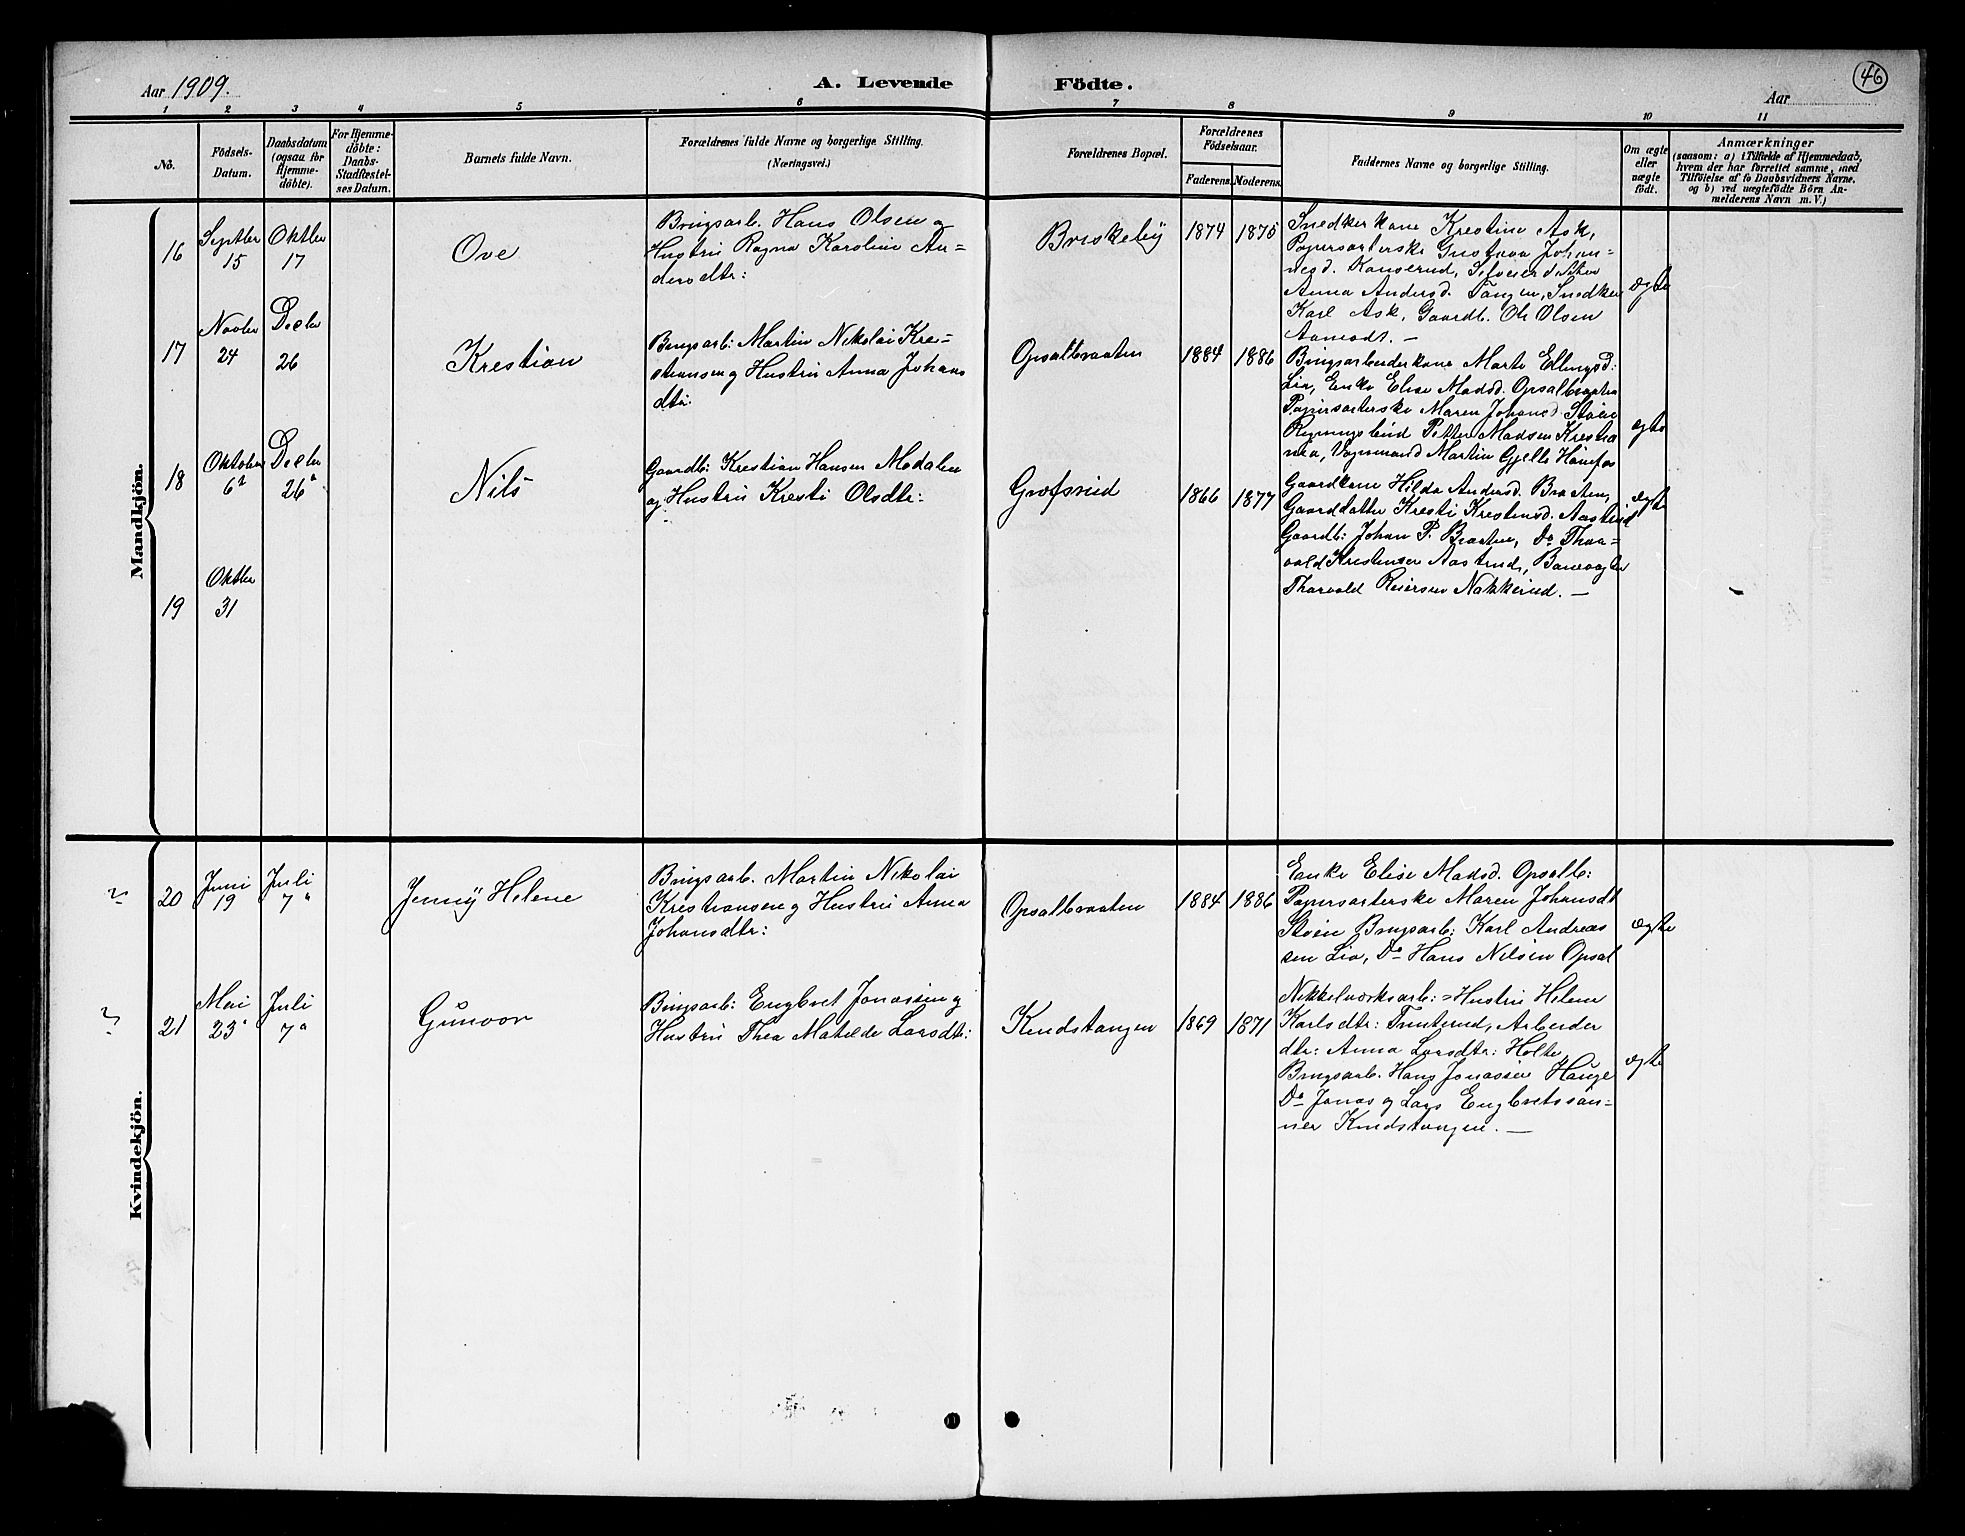 Aar 1909.
A. Levende Födte.
Aar
46
1 2 3 4 5 6 7 8 9 10 11
No.
Födsels-
Datum.
Daabsdatum
(ogsaa for
Hjemme-
döbte).
For Hjemme-
döbte:
Daabs-
Stadfæstel-
ses Datum.
Barnets fulde Navn.
Forældrenes fulde Navne og borgerlige Stilling.
(Næringsvei.)
Forældrenes Bopæl.
Forældrenes
Födselsaar.
Faderens. Moderens.
Faddernes Navne og borgerlige Stilling.
Om ægte
eller
uægte
födt.
Anmærkninger
(saasom: a) i Tilfælde af Hjemmedaab,
hvem der har forrettet samme, med
Tilföielse af to Daabsvidners Navne,
og b) ved uægtefödte Börn An-
melderens Navn m. V.)
Mandkjön.
16
Septbr
15
Oktbr
17
Ove
Brugsarb. Hans Olsen og
Hustru Ragna Karoline An=
dersdtr:
Briskeby
1874 1875
Snedkerkone Krestine Ask,
Papirsorterske Gustava Johan=
nesd.
Anna Andersd. Tangen, Snedker
Karl Ask, Gaardb. Ole Olsen
Aamodt. —
ægte
17
Novbr
24
Decbr
26
Krestian
Brugsarb: Martin Nikolai Kre=
stiansen og Hustru Anna Johans
dtr:
Opsalbraaten
1884 1886
Brugsarbeiderkone Marte Ellingsd:
Lia, Enke Elise Madsd. Opsalbraaten
Papirsorterske Maren Johansd. Stöen
Petter Madsen Krestia
nia, Vognmand Martin Gjelle Hönefos
ægte
18
Oktober
6
Decbr
26
Nils
Gaardb: Krestian Hansen Modalen
og Hustru Kresti Olsdtr:
Grøfsrud
1866 1877
Gaardkone Hilda Andersd. Braaten,
Gaarddatter Kresti Krestensd. Aastrud
Gaardb: Johan P. Braaten, Do Thor=
vald Krestensen Aastrud, Banevogter
Thorvald Reiersen Nakkerud. —
ægte
19
Oktbr
31
Kvindekjön.
20
Juni
19
Juli
7
Jenny Helene
Brugsarb. Martin Nikolai
Krestiansen og Hustru Anna
Johansdtr:
Opsalbraaten
1884 1886
Enke Elise Madsd. Opsalb:
Papirsorterske Maren Johansdt
Stöen Brugsarb: Karl Andreas
sen Lia, Do Hans Nilsen Opsal
ægte
21
Mai
23
Juli
7
Gunvor
Brugsarb: Engbret Jonassen og
Hustru Thea Matilde Larsdtr:
Knudstangen
1869 1871
Nikkelverksarb:=Hustru Helene
Karlsdtr: Arbeider
dtr: Anna Larsdtr: Holte,
Brugsarb. Hans Jonassen Hauge
Do Jonas og Lars Engbretssön=
ner Knudstangen. —
ægte